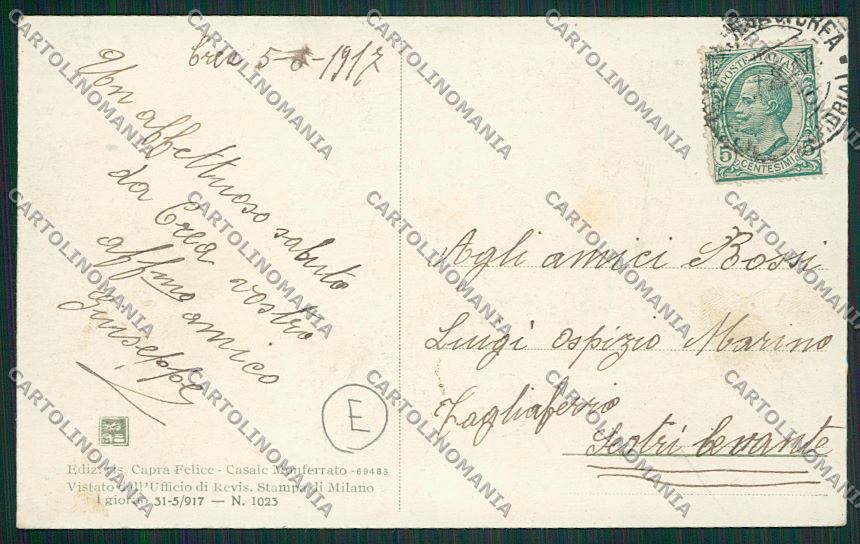 Crea 5-6-1917
Un affettuoso saluto
da Crea vostro
affmo amico
Giuseppe
E
Ediz. Capra Felice - Casale Monferrato -69483
Vistato dall'Ufficio di Revis. Stampa di Milano
l giorno 31-5/917 — N. 1023
POSTE ITALIANE
5 5
CENTESIMI
CREA
Agli amici Rossi
Luigi Ospizio Marino
Tagliaferro
Sestri Levante
CARTOLINOMANIA